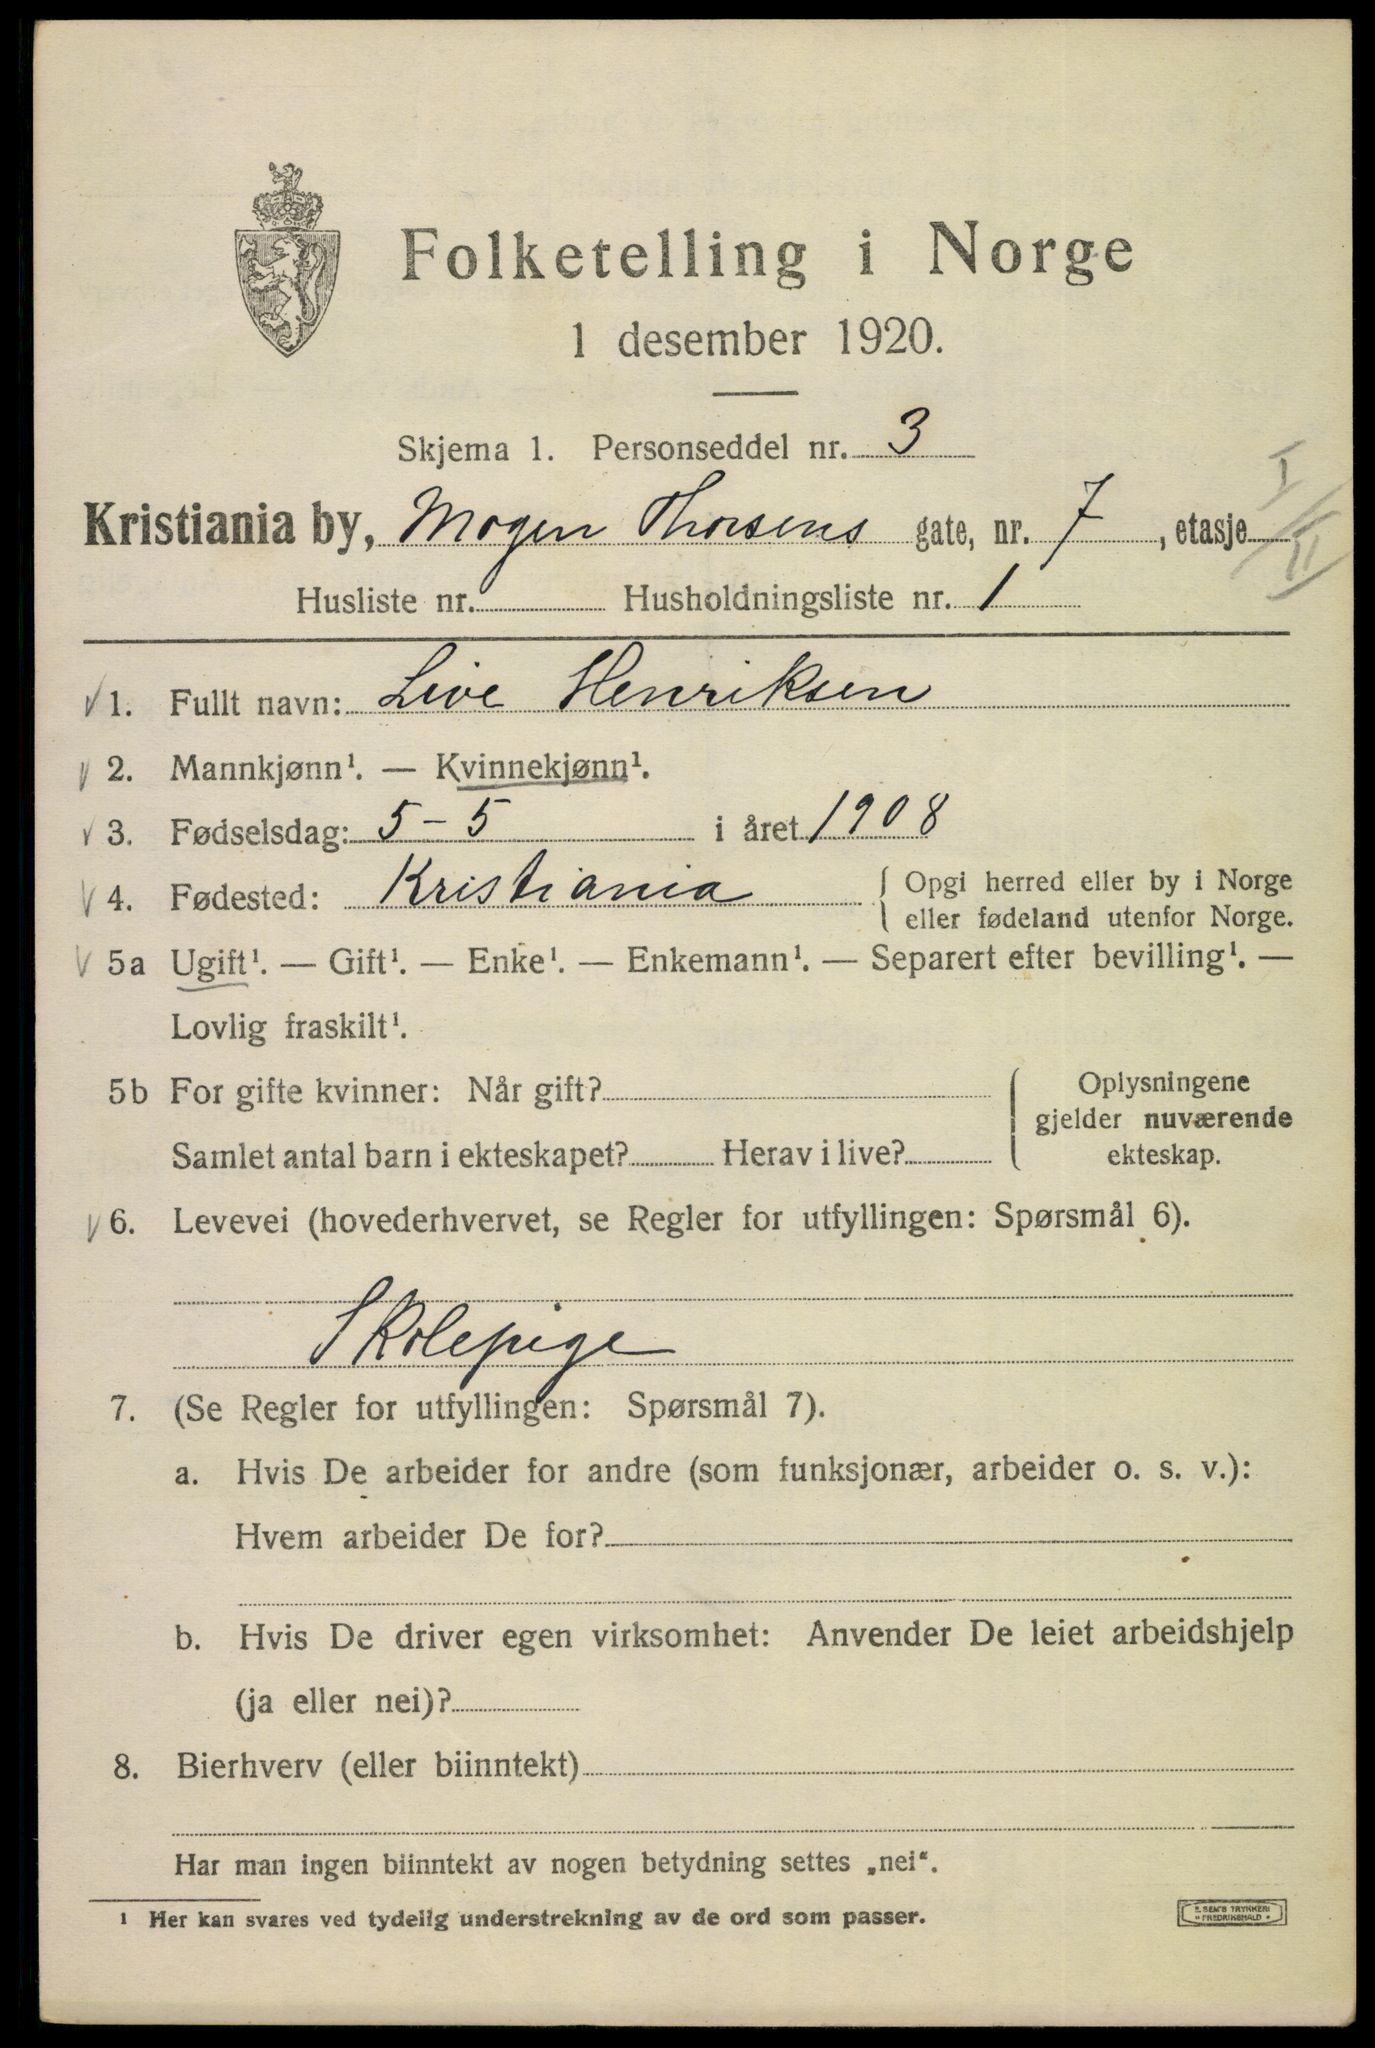 Folketelling i Norge
1 desember 1920.
Skjema 1. Personseddel nr. 3
Kristiania by, Mogen Thorsens gate, nr. 7, etasje I/II
Husliste nr. Husholdningsliste nr. 1
1. Fullt navn: Live Henriksen
2. Mannkjønn¹. — Kvinnekjønn¹.
3. Fødselsdag: 5-5 i året 1908
4. Fødested: Kristiania { Opgi herred eller by i Norge
eller fødeland utenfor Norge.
5a Ugift¹. — Gift¹. — Enke¹. — Enkemann¹. — Separert efter bevilling¹. —
Lovlig fraskilt¹.
5b For gifte kvinner: Når gift? Oplysningene
gjelder nuværende
Samlet antal barn i ekteskapet? Herav i live? ekteskap.
6. Levevei (hovederhvervet, se Regler for utfyllingen: Spørsmål 6).
Skolepige
7. (Se Regler for utfyllingen: Spørsmål 7).
a. Hvis De arbeider for andre (som funksjonær, arbeider o. s. v.):
Hvem arbeider De for?
b. Hvis De driver egen virksomhet: Anvender De leiet arbeidshjelp
(ja eller nei)?
8. Bierhverv (eller biinntekt)
Har man ingen biinntekt av nogen betydning settes „nei“.
¹ Her kan svares ved tydelig understrekning av de ord som passer.
E. SEM'S TRYKKERI
FREDRIKSHALD